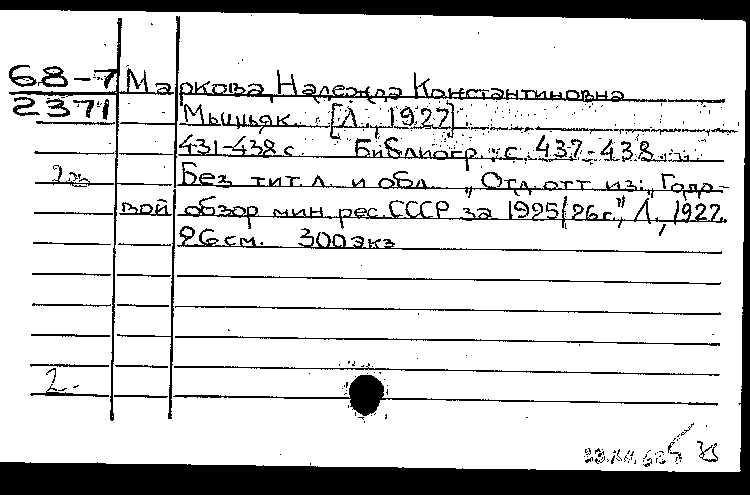 68-7 Маркова, Надежда Константиновна
2371 Мышьяк. [Л., 1927].
431-438 с. Библиогр.: с. 437-438
2э Без тит. л. и обл. „Отд. отт. из: „Годо-
вой обзор мин. рес. СССР за 1925/26 г.", Л., 1927.
26 см. 300 экз
2.